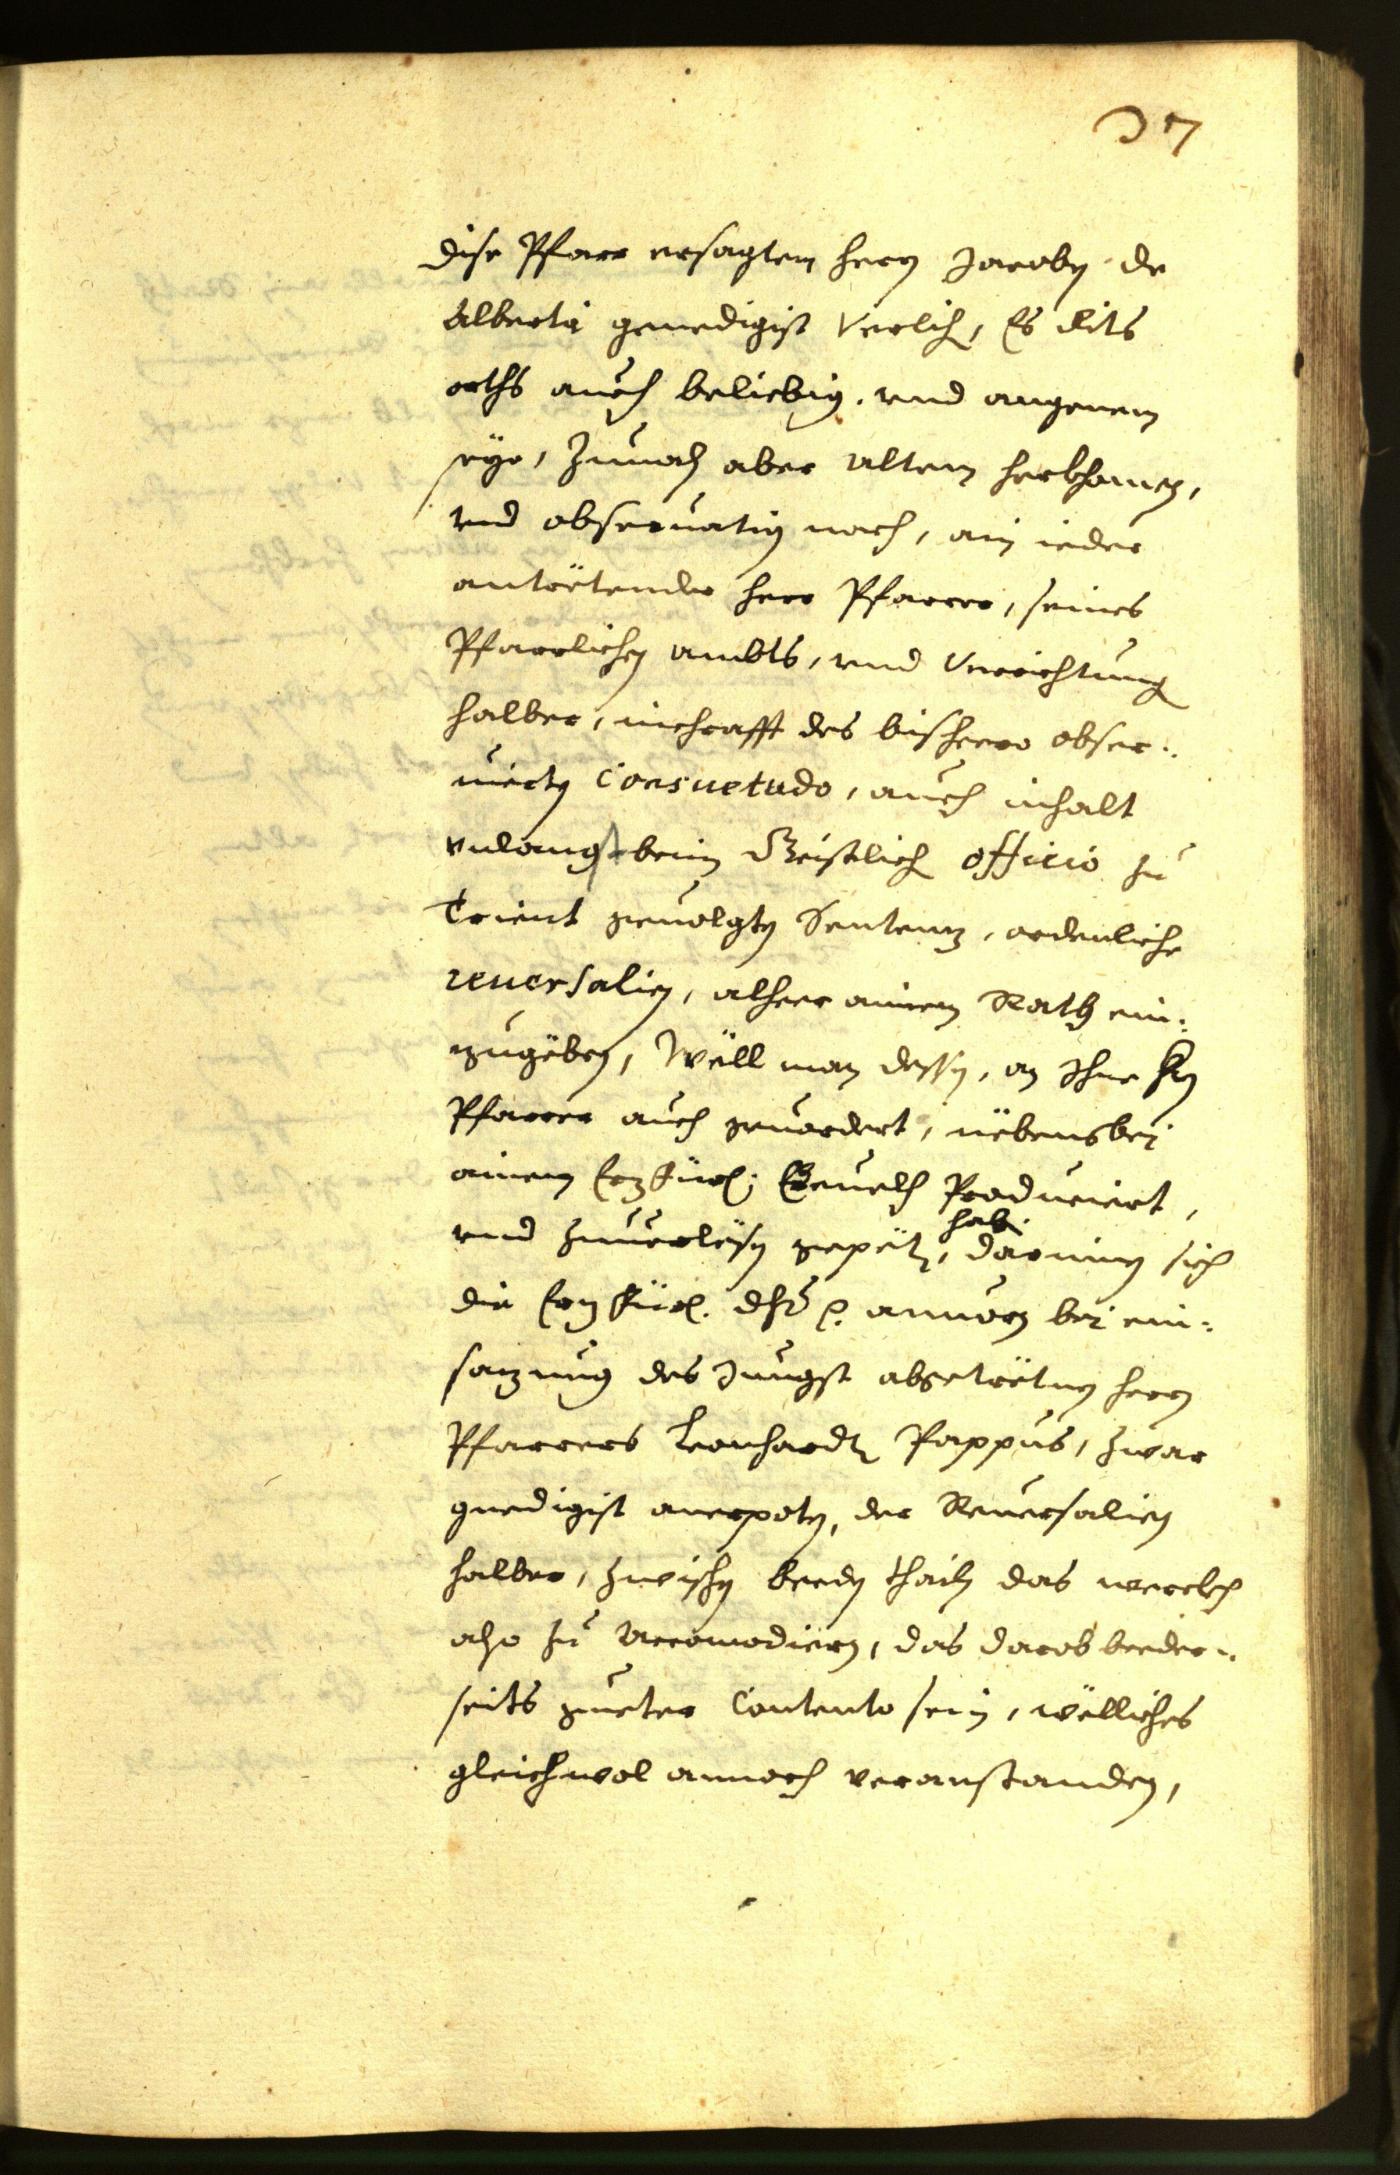 37
dise Pfarr ersagtem herrn Jacoby de
Alberti genedigist Verlich, Es dits
orths auch beliebig, vnd angenem
seye, Zumaln aber altem herkhomen,
vnd obseruation nach, ain ieder
antrëtender herr Pfarrer, seines
Pfarrlichen ambts, vnd Verrichtung
halber, in chrafft des bishero obser-
uierten Consuetudo, auch inhalt
vnlangst beim Geistlich officio zu
Trient geuolgten Sentenz, ordenliche
reuersalien, alher ainem Rath ein-
zugëben, Wëll man dessen, an Ihne hrn
Pfarrer auch geuordert, nëbensbei
ainem Erzfürl: Beuelch Produciert,
hab.
vnd zuuerlësen gepëten, darinnen sich
die Erzfürl. dht p. annorn bei ein-
sazung des Jungst abgetrëtnen herrn
Pfarrers Leonhardt Pappus, zwar
gnedigist anerpoten, der Reuersalien
halber, zwischen beeden thailn das werckh
also zu accomodiern, das darob beeder-
seits gueter Contento sein, wëlliches
gleichwol annoch veranstanden,